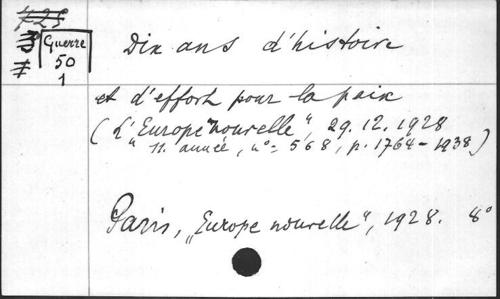 Guerre
50
1
Dix ans d'histoire
et d'effort pour la paix
(L'"Europe nouvelle", 29.12.1928
11. année, n°= 568, p. 1764-1838)
Paris, „Europe nouvelle", 1928. 8°